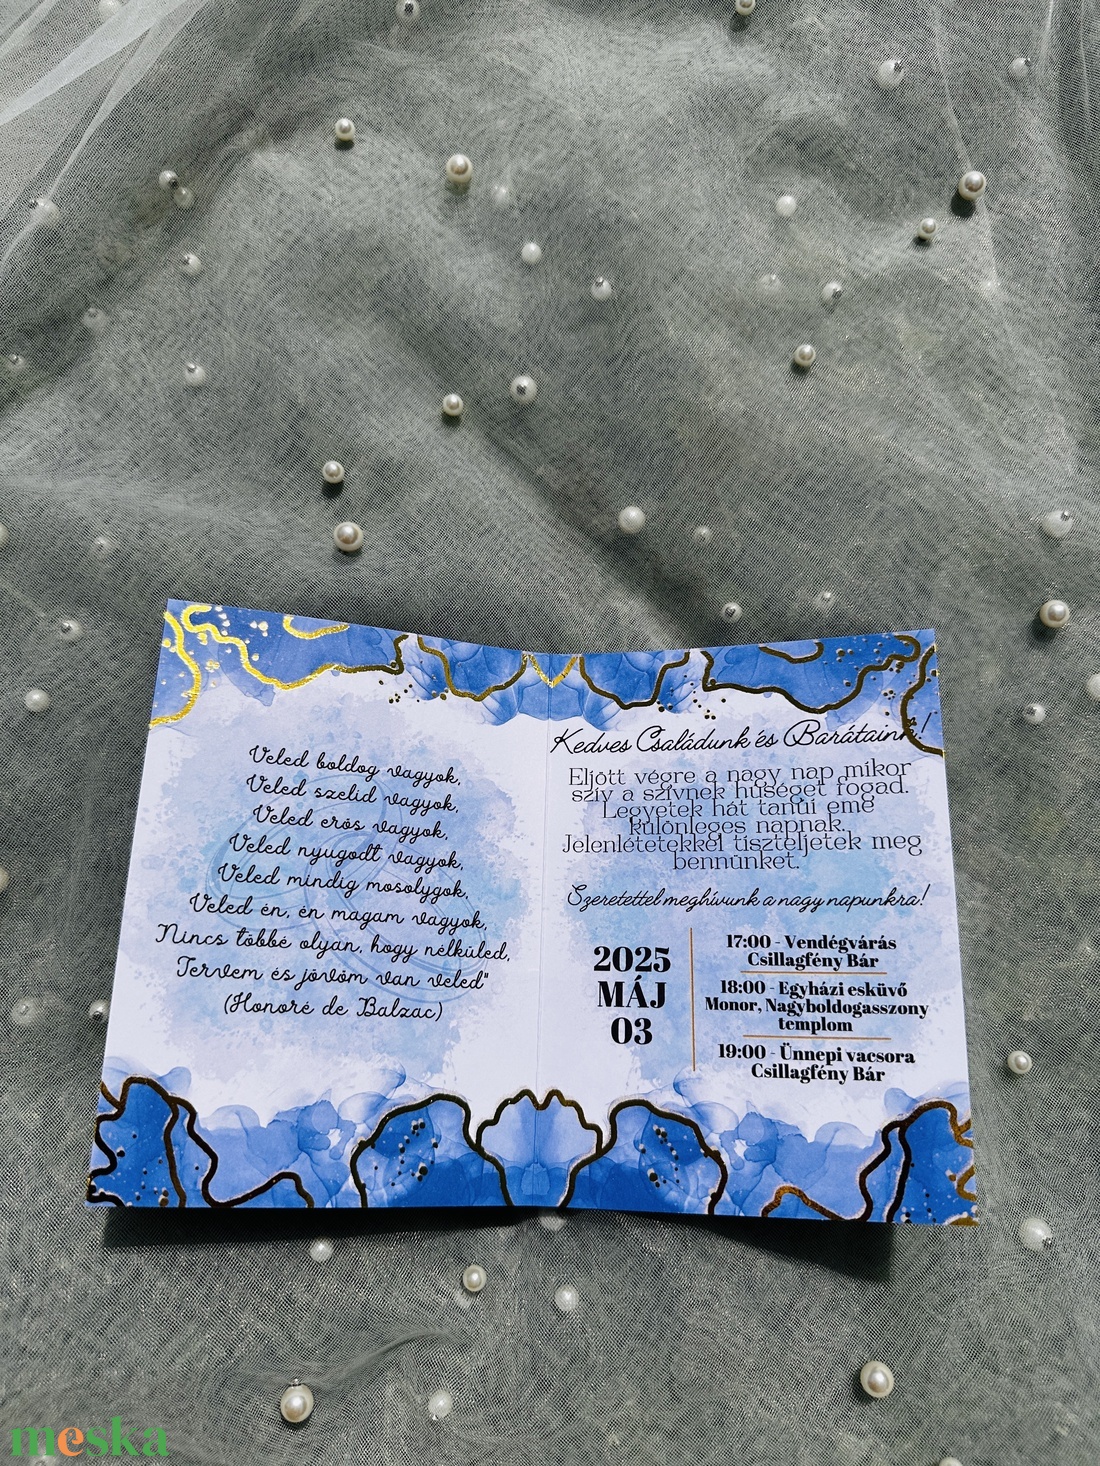 Veled boldog vagyok,
Veled szelíd vagyok,
Veled erős vagyok,
Veled nyugodt vagyok,
Veled mindig mosolygok,
Veled én, én magam vagyok,
Nincs többé olyan, hogy nélküled,
Tervem és jövőm van veled"
(Honoré de Balzac)
Kedves Családunk és Barátaink!
Eljött végre a nagy nap mikor
szív a szívnek hűséget fogad.
Legyetek hát tanúi eme
különleges napnak.
Jelenlétetekkel tiszteljetek meg
bennünket.
Szeretettel meghívunk a nagy napunkra!
2025
MÁJ
03
17:00 - Vendégvárás
Csillagfény Bár
18:00 - Egyházi esküvő
Monor, Nagyboldogasszony
templom
19:00 - Ünnepi vacsora
Csillagfény Bár
meska